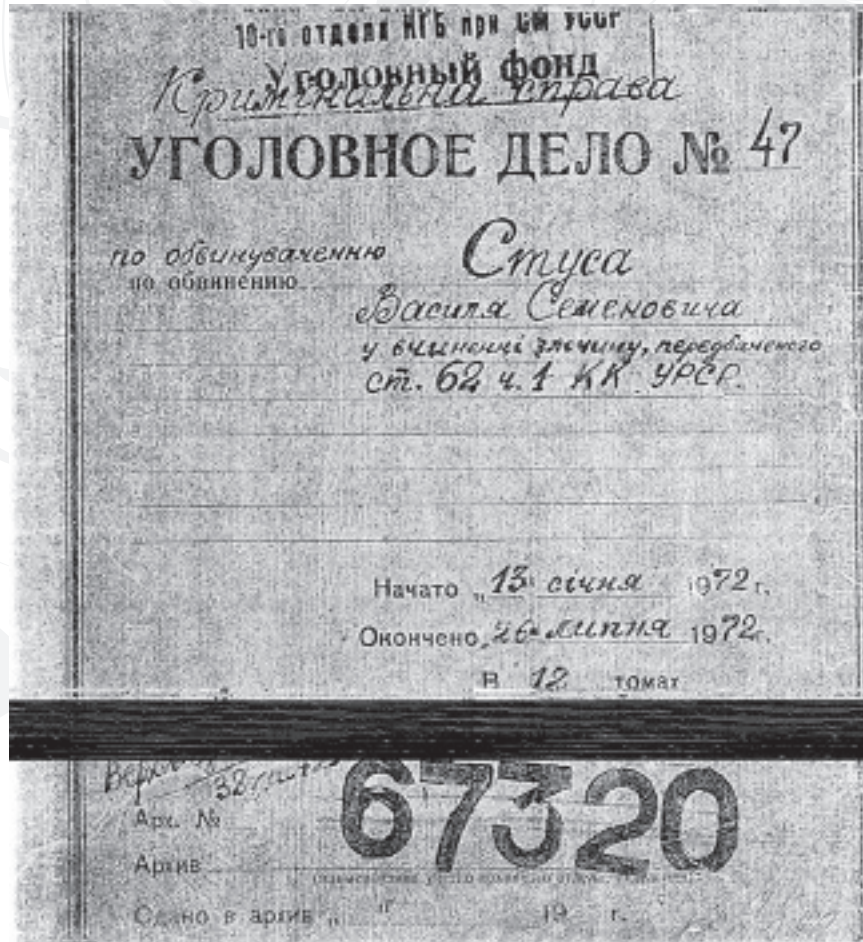 10-го отдела КГБ при СМ УССР
Уголовный фонд
Кримінальна справа
УГОЛОВНОЕ ДЕЛО № 47
по обвинуваченню Стуса
по обвинению
Василя Семеновича
у вчиненні злочину, передбаченого
ст. 62 ч. 1 КК УРСР.
Начато „13" січня 1972 г.
Окончено „26" липня 1972 г.
В 12 томах
67320
Арх. №
Архив
Сдано в архив „ " 19 г.